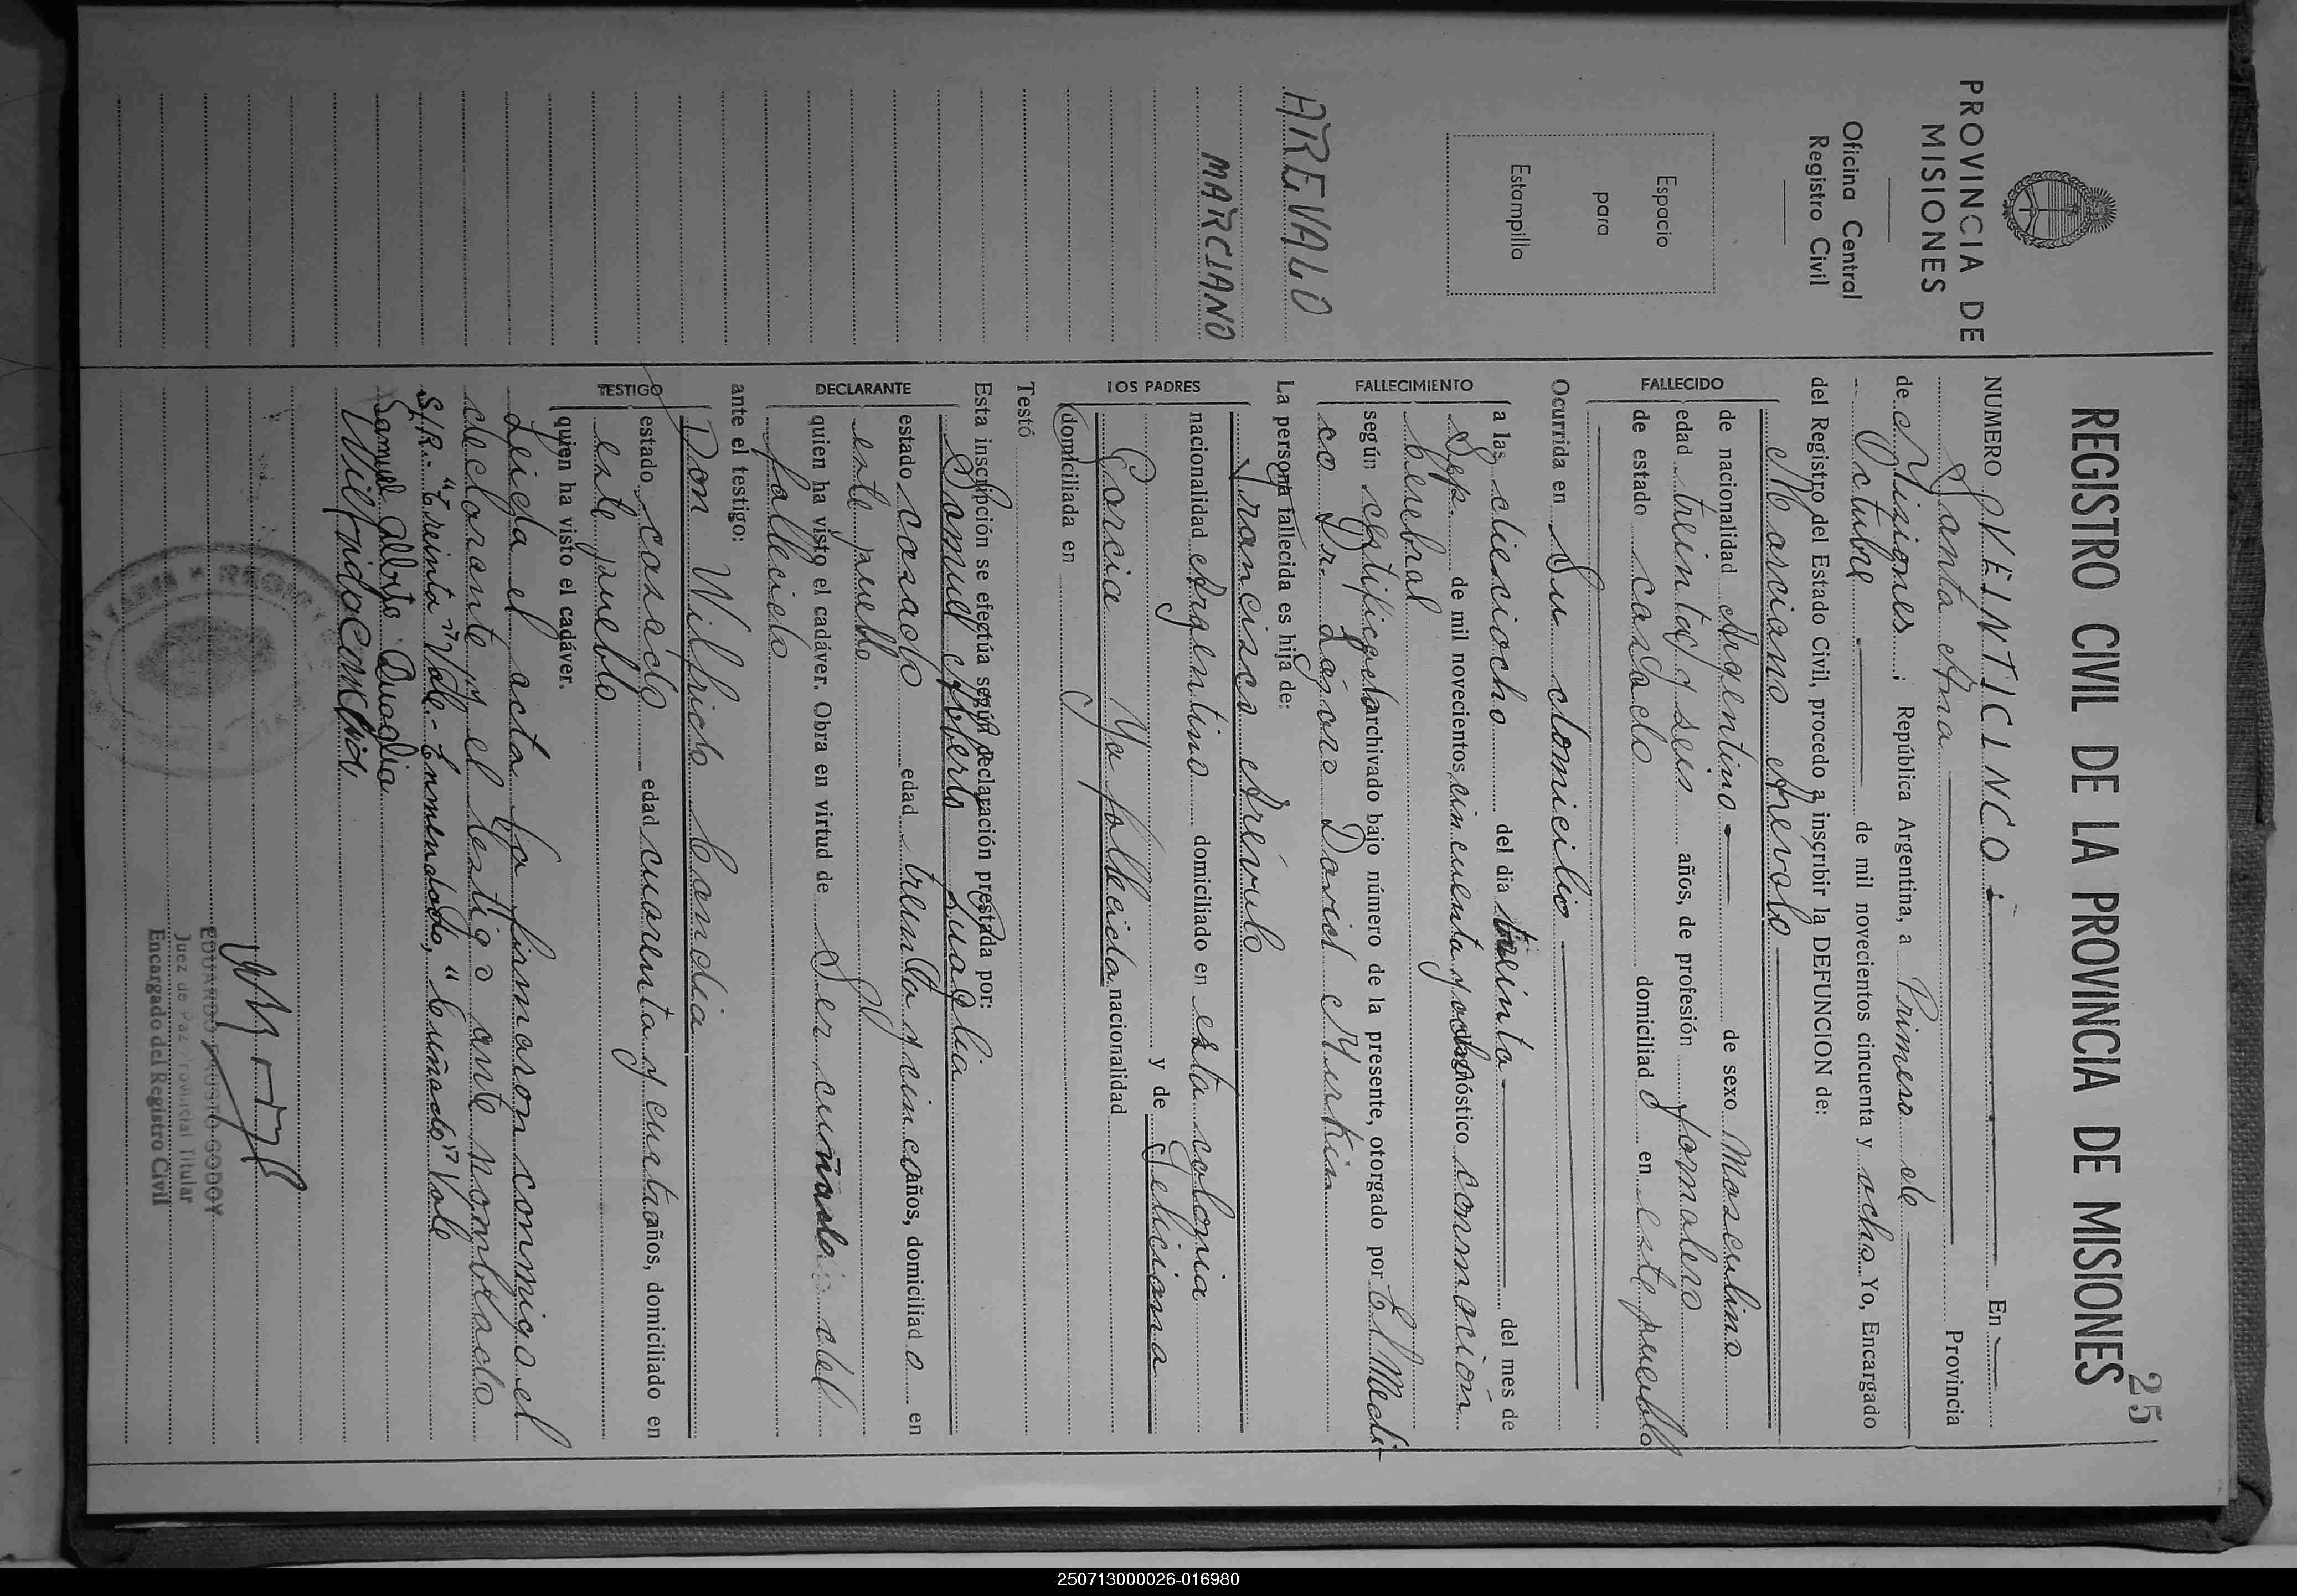 25
REGISTRO CIVIL DE LA PROVINCIA DE MISIONES
PROVINCIA DE
MISIONES
Oficina Central
Registro Civil
Espacio
para
Estampilla
AREVALO
MARCIANO
NUMERO VEINTICINCO :— En —
Santa Ana — Provincia
de Misiones ; República Argentina, a Primero de —
Octubre .— de mil novecientos cincuenta y ocho Yo, Encargado
del Registro del Estado Civil, procedo a inscribir la DEFUNCION de:
Marciano Arevalo —
FALLECIDO
de nacionalidad Argentino — de sexo Masculino
edad treinta y seis años, de profesión Jornalero
de estado casado domiciliad o en este pueblo
Ocurrida en Su domicilio —
FALLECIMIENTO
a las dieciocho del dia treinta — del mes de
Sep. de mil novecientos cincuenta y ocho conmoción
cerebral
según certificado archivado bajo número de la presente, otorgado por El Medi-
co Dr. Lázaro David
La persona fallecida es hija de:
LOS PADRES
Francisco Arévalo
nacionalidad Argentino domiciliado en esta colonia
y de Feliciana
Garcia Ya fallecida nacionalidad
domiciliada en
Testó
Esta inscripción se efectúa según declaración prestada por:
DECLARANTE
Samuel Alberto Quaglia
estado casado edad treinta y cinco años, domiciliad o en
este pueblo
quien ha visto el cadáver. Obra en virtud de Ser cuñado del
fallecido
ante el testigo:
TESTIGO
Don Wilfrido Candia
estado casado edad cuarenta y cuatro años, domiciliado en
este pueblo
quien ha visto el cadáver.
Leida el acta la firmaron conmigo el
declarante y el testigo ante nombrado
S/R.- "treinta" Vale.- Enmendado, "cuñado" Vale
Samuel Alberto Quaglia
Wilfrido Candia
EDUARDO FAUSTO GODOY
Juez de Paz Provincial Titular
Encargado del Registro Civil
250713000026-016980